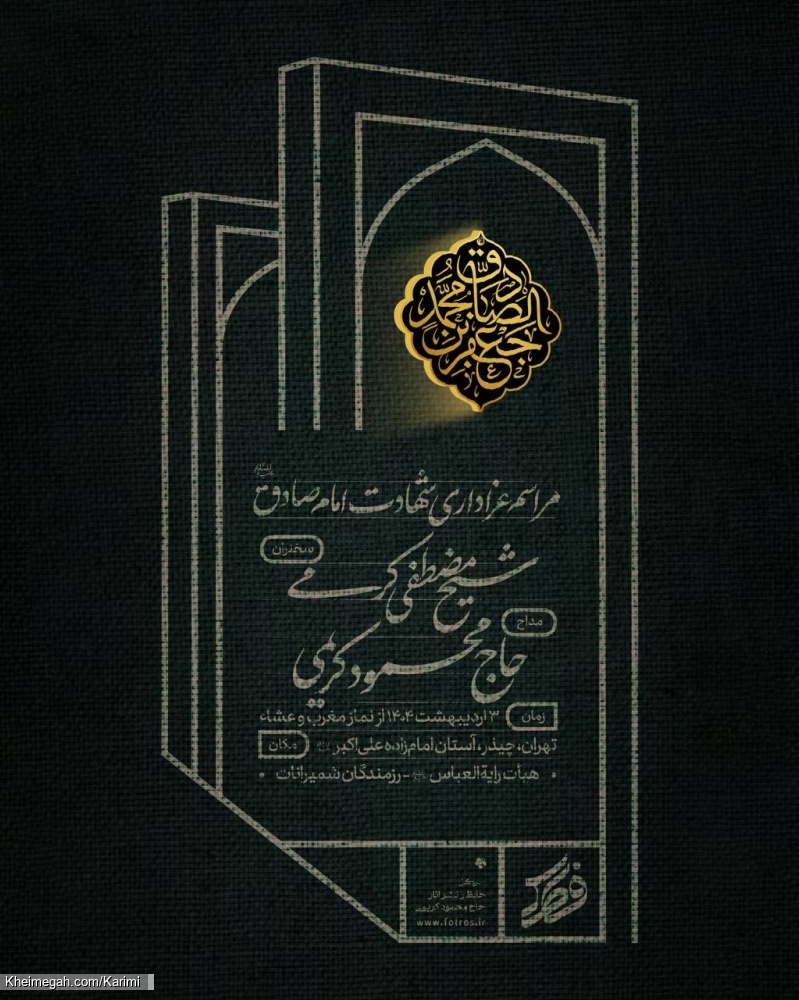 جعفر بن محمد الصادق
مراسم عزاداری شهادت امام صادق علیه‌السلام
سخنران
شیخ مصطفی کرمی
مداح
حاج محمود کریمی
زمان
۳ اردیبهشت ۱۴۰۴ از نماز مغرب و عشاء
تهران، چیذر، آستان امامزاده علی‌اکبر
مکان
• هیأت رایة العباس - رزمندگان شمیرانات •
فطرس
مرکز
حفظ و نشر آثار
حاج محمود کریمی
www.fotros.ir
Kheimegah.com/Karimi